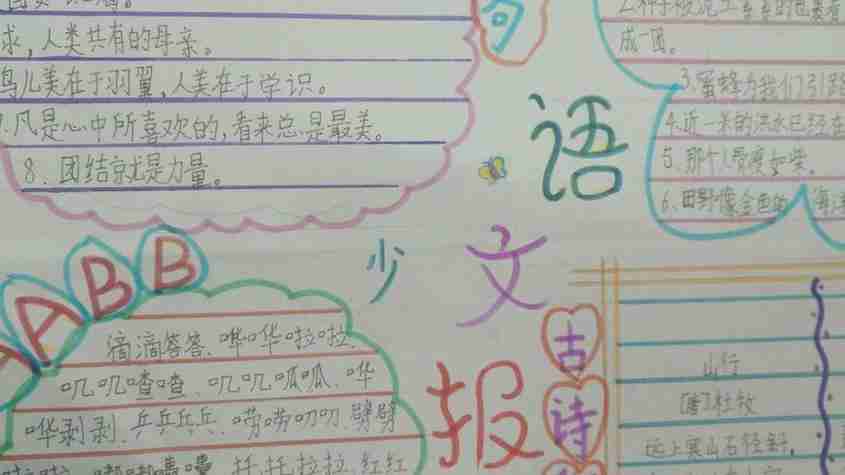 求，人类共有的母亲。
鸟儿美在于羽翼，人美在于学识。
凡是心中所喜欢的，看来总是最美。
8、团结就是力量。
句
成一团。
3、蜜蜂为我们引路
4、近一米的洪水已经在
5、那个人骨瘦如柴。
6、田野像金色的海洋
语
文
少
报
AABB
滴滴答答、哗哗啦啦、
叽叽喳喳、叽叽呱呱、哗
哗剥剥、乒乒乓乓、唠唠叨叨、劈劈
古
诗
山行
[唐]杜牧
远上寒山石径斜，